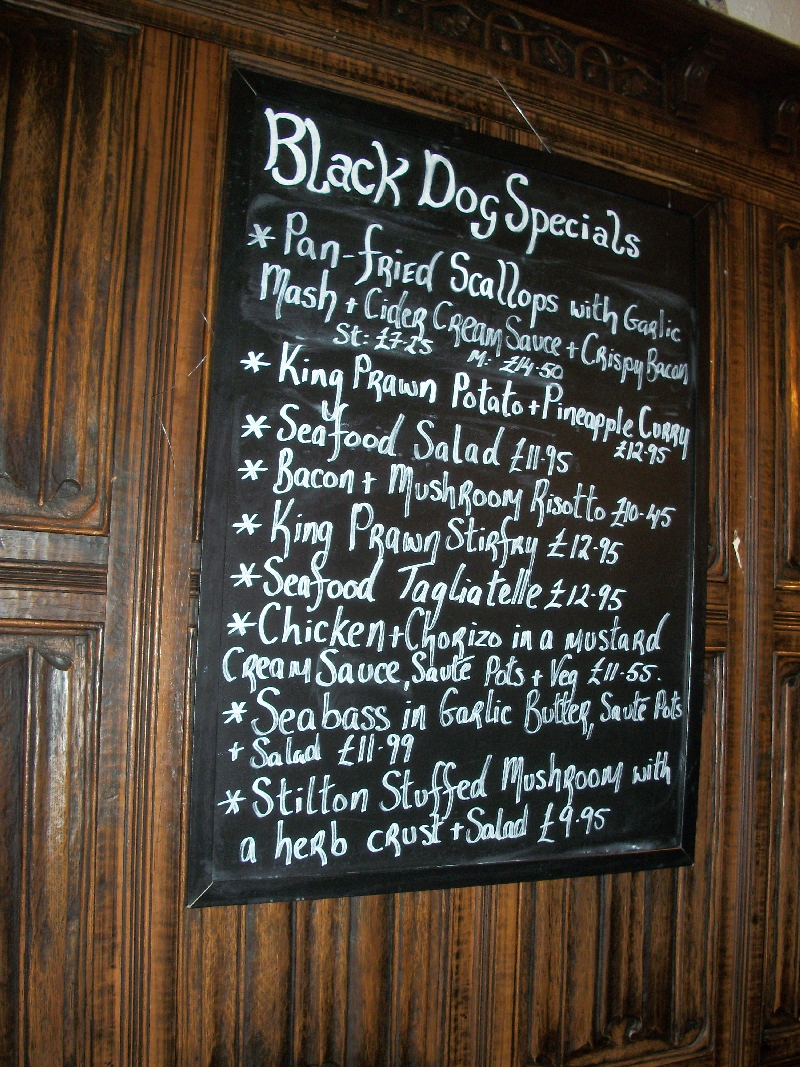 Black Dog Specials
* Pan-fried Scallops with Garlic
Mash + Cider Cream Sauce + Crispy Bacon
St: £7.25 M: £14.50
* King Prawn Potato + Pineapple Curry
£12.95
* Seafood Salad £11.95
* Bacon + Mushroom Risotto £10.45
* King Prawn Stirfry £12.95
* Seafood Tagliatelle £12.95
* Chicken + Chorizo in a mustard
Cream Sauce, Sauté Pots + Veg £11.55.
* Seabass in Garlic Butter, Sauté Pots
+ Salad £11.99
* Stilton Stuffed Mushroom with
a herb crust + Salad £9.95